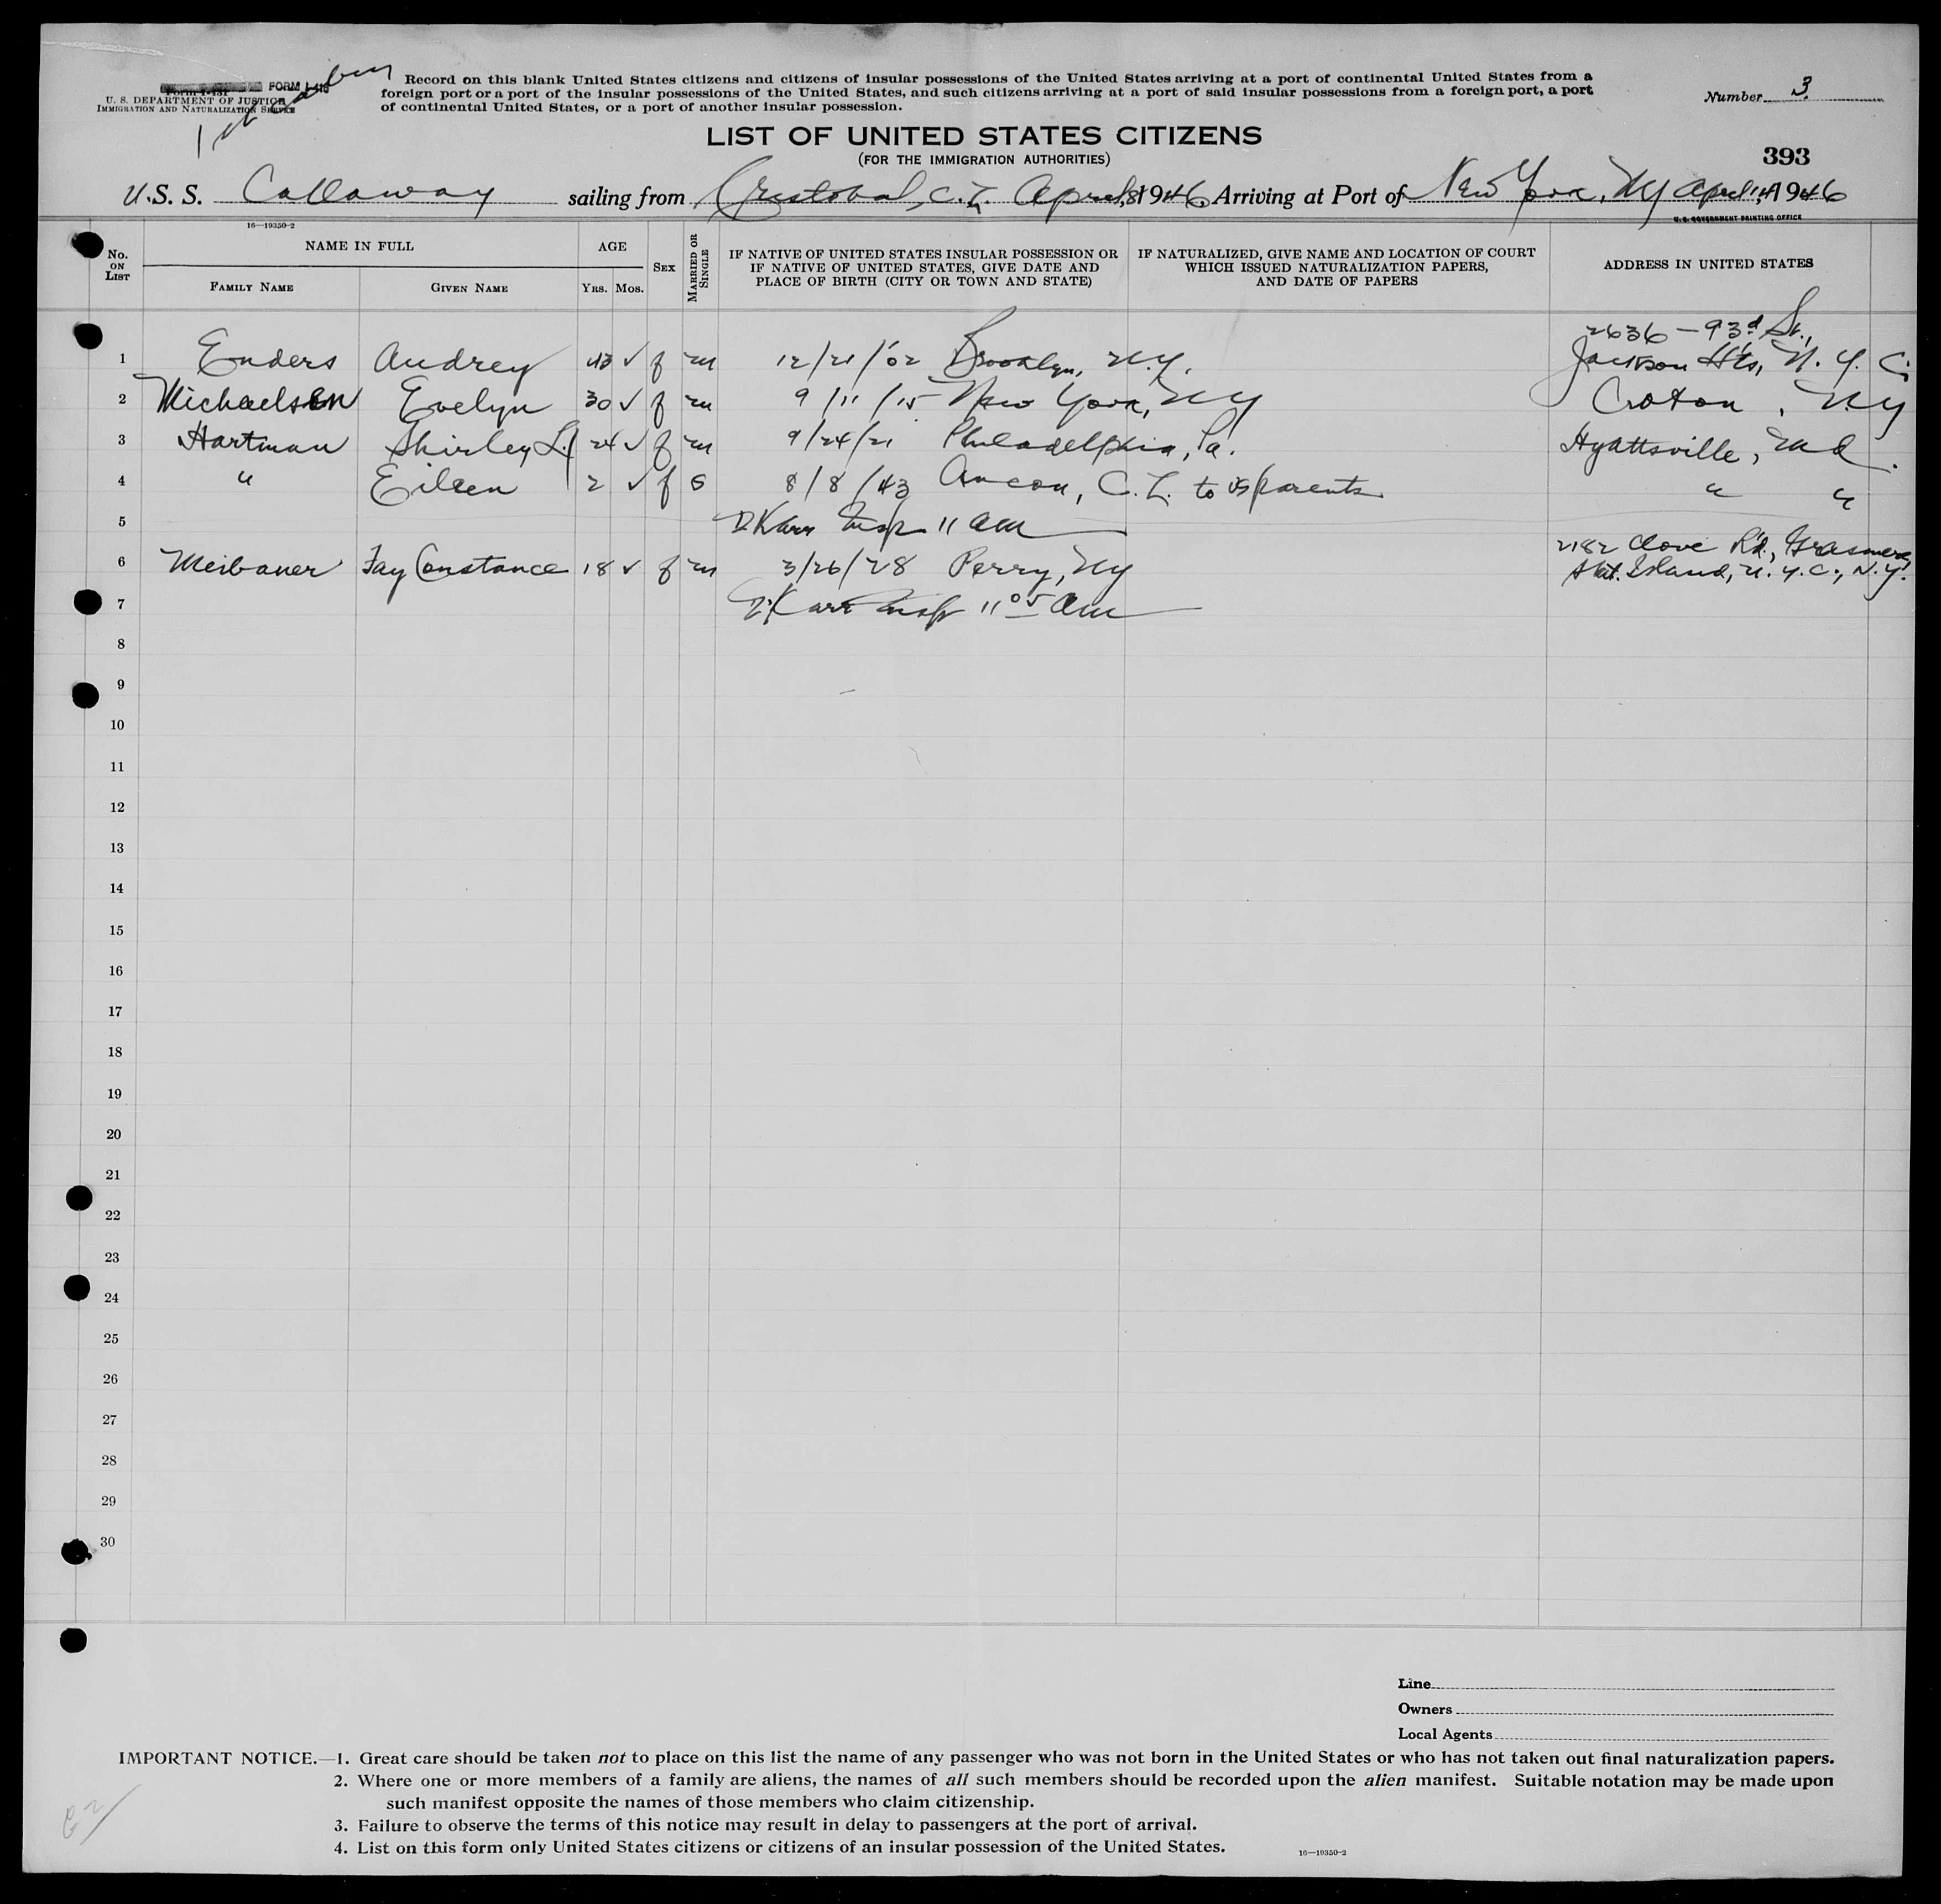 FORM I-415
Form I-431
U. S. DEPARTMENT OF JUSTICE
IMMIGRATION AND NATURALIZATION SERVICE
Record on this blank United States citizens and citizens of insular possessions of the United States arriving at a port of continental United States from a
foreign port or a port of the insular possessions of the United States, and such citizens arriving at a port of said insular possessions from a foreign port, a port
of continental United States, or a port of another insular possession.
Number 3
LIST OF UNITED STATES CITIZENS
(FOR THE IMMIGRATION AUTHORITIES)
393
U.S. S. Callaway sailing from Cristobal, C.Z. April 8, 1946, Arriving at Port of New York, NY April 14, 1946
U.S. GOVERNMENT PRINTING OFFICE
16—19350-2
No. ON LIST NAME IN FULL AGE SEX MARRIED OR SINGLE IF NATIVE OF UNITED STATES INSULAR POSSESSION OR IF NATIVE OF UNITED STATES, GIVE DATE AND PLACE OF BIRTH (CITY OR TOWN AND STATE) IF NATURALIZED, GIVE NAME AND LOCATION OF COURT WHICH ISSUED NATURALIZATION PAPERS, AND DATE OF PAPERS ADDRESS IN UNITED STATES
FAMILY NAME GIVEN NAME YRS. MOS.
2636 - 93d St.,
1 Enders Audrey 43 ✓ f m 12/21/'02 Brooklyn, N.Y. Jackson Hts, N. Y. C.
2 Michaelsen Evelyn 30 ✓ f m 9/11/15 New York, NY Croton, N.Y
3 Hartman Shirley L. 24 ✓ f m 9/24/21 Philadelphia, Pa. Hyattsville, Md.
4 " Eileen 2 ✓ f S 8/8/43 Ancon, C.Z. to US parents " "
5 Karr Insp 11 am
2182 Clove Rd., Grasmere
6 Meibauer Fay Constance 18 ✓ f m 3/26/28 Perry, NY Stat. Island, N.Y.C., N.Y.
7 Karr Insp 11 05 am
8
9
10
11
12
13
14
15
16
17
18
19
20
21
22
23
24
25
26
27
28
29
30
Line
Owners
Local Agents
IMPORTANT NOTICE.—1. Great care should be taken not to place on this list the name of any passenger who was not born in the United States or who has not taken out final naturalization papers.
2. Where one or more members of a family are aliens, the names of all such members should be recorded upon the alien manifest. Suitable notation may be made upon
such manifest opposite the names of those members who claim citizenship.
3. Failure to observe the terms of this notice may result in delay to passengers at the port of arrival.
4. List on this form only United States citizens or citizens of an insular possession of the United States.
16—19350-2